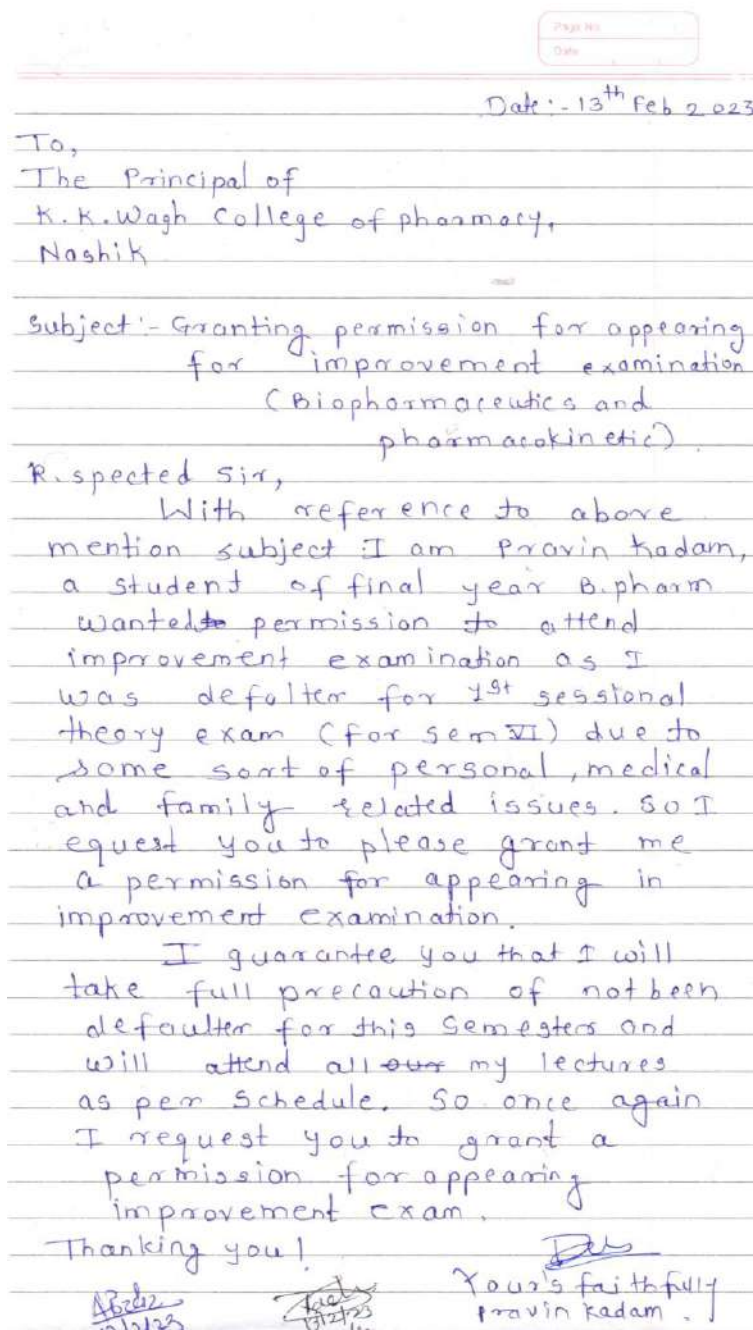 Page No.
Date
Date :- 13th Feb 2023
To,
The Principal of
K.K.Wagh College of pharmacy,
Nashik
Subject :- Granting permission for appearing
for improvement examination
(Biopharmaceutics and
pharmacokinetic)
R.spected Sir,
With reference to above
mention subject I am Pravin Kadam,
a student of final year B.pharm
wanted permission to attend
improvement examination as I
was defalter for 1st sessional
theory exam (for sem VI) due to
some sort of personal, medical
and family related issues. So I
equest you to please grant me
a permission for appearing in
improvement examination.
I guarantee you that I will
take full precaution of not been
defaulter for this Semesters and
will attend all our my lectures
as per Schedule. So once again
I request you to grant a
permission for appearing
improvement exam.
Thanking you!
Your's faithfully
Pravin Kadam.
13/2/23